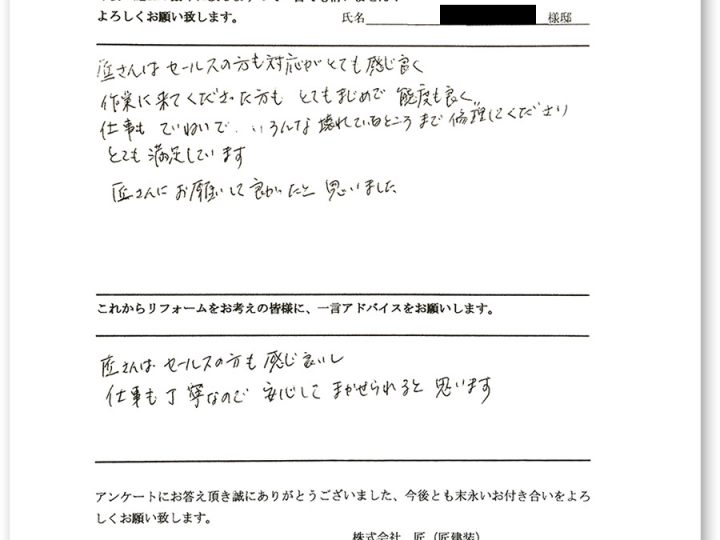 よろしくお願い致します。 氏名 様邸
匠さんは セールスの方も対応がとても感じ良く
作業に来てくださった方も とてもまじめで 態度も良く、
仕事も ていねいで、いろんな壊れているところまで修理してくださり
とても満足しています
匠さんにお願いして良かったと 思いました
これからリフォームをお考えの皆様に、一言アドバイスをお願いします。
匠さんは セールスの方も感じ良いし
仕事も丁寧なので 安心して まかせられると 思います
アンケートにお答え頂き誠にありがとうございました、今後とも末永いお付き合いをよろ
しくお願い致します。
株式会社 匠（匠建装）